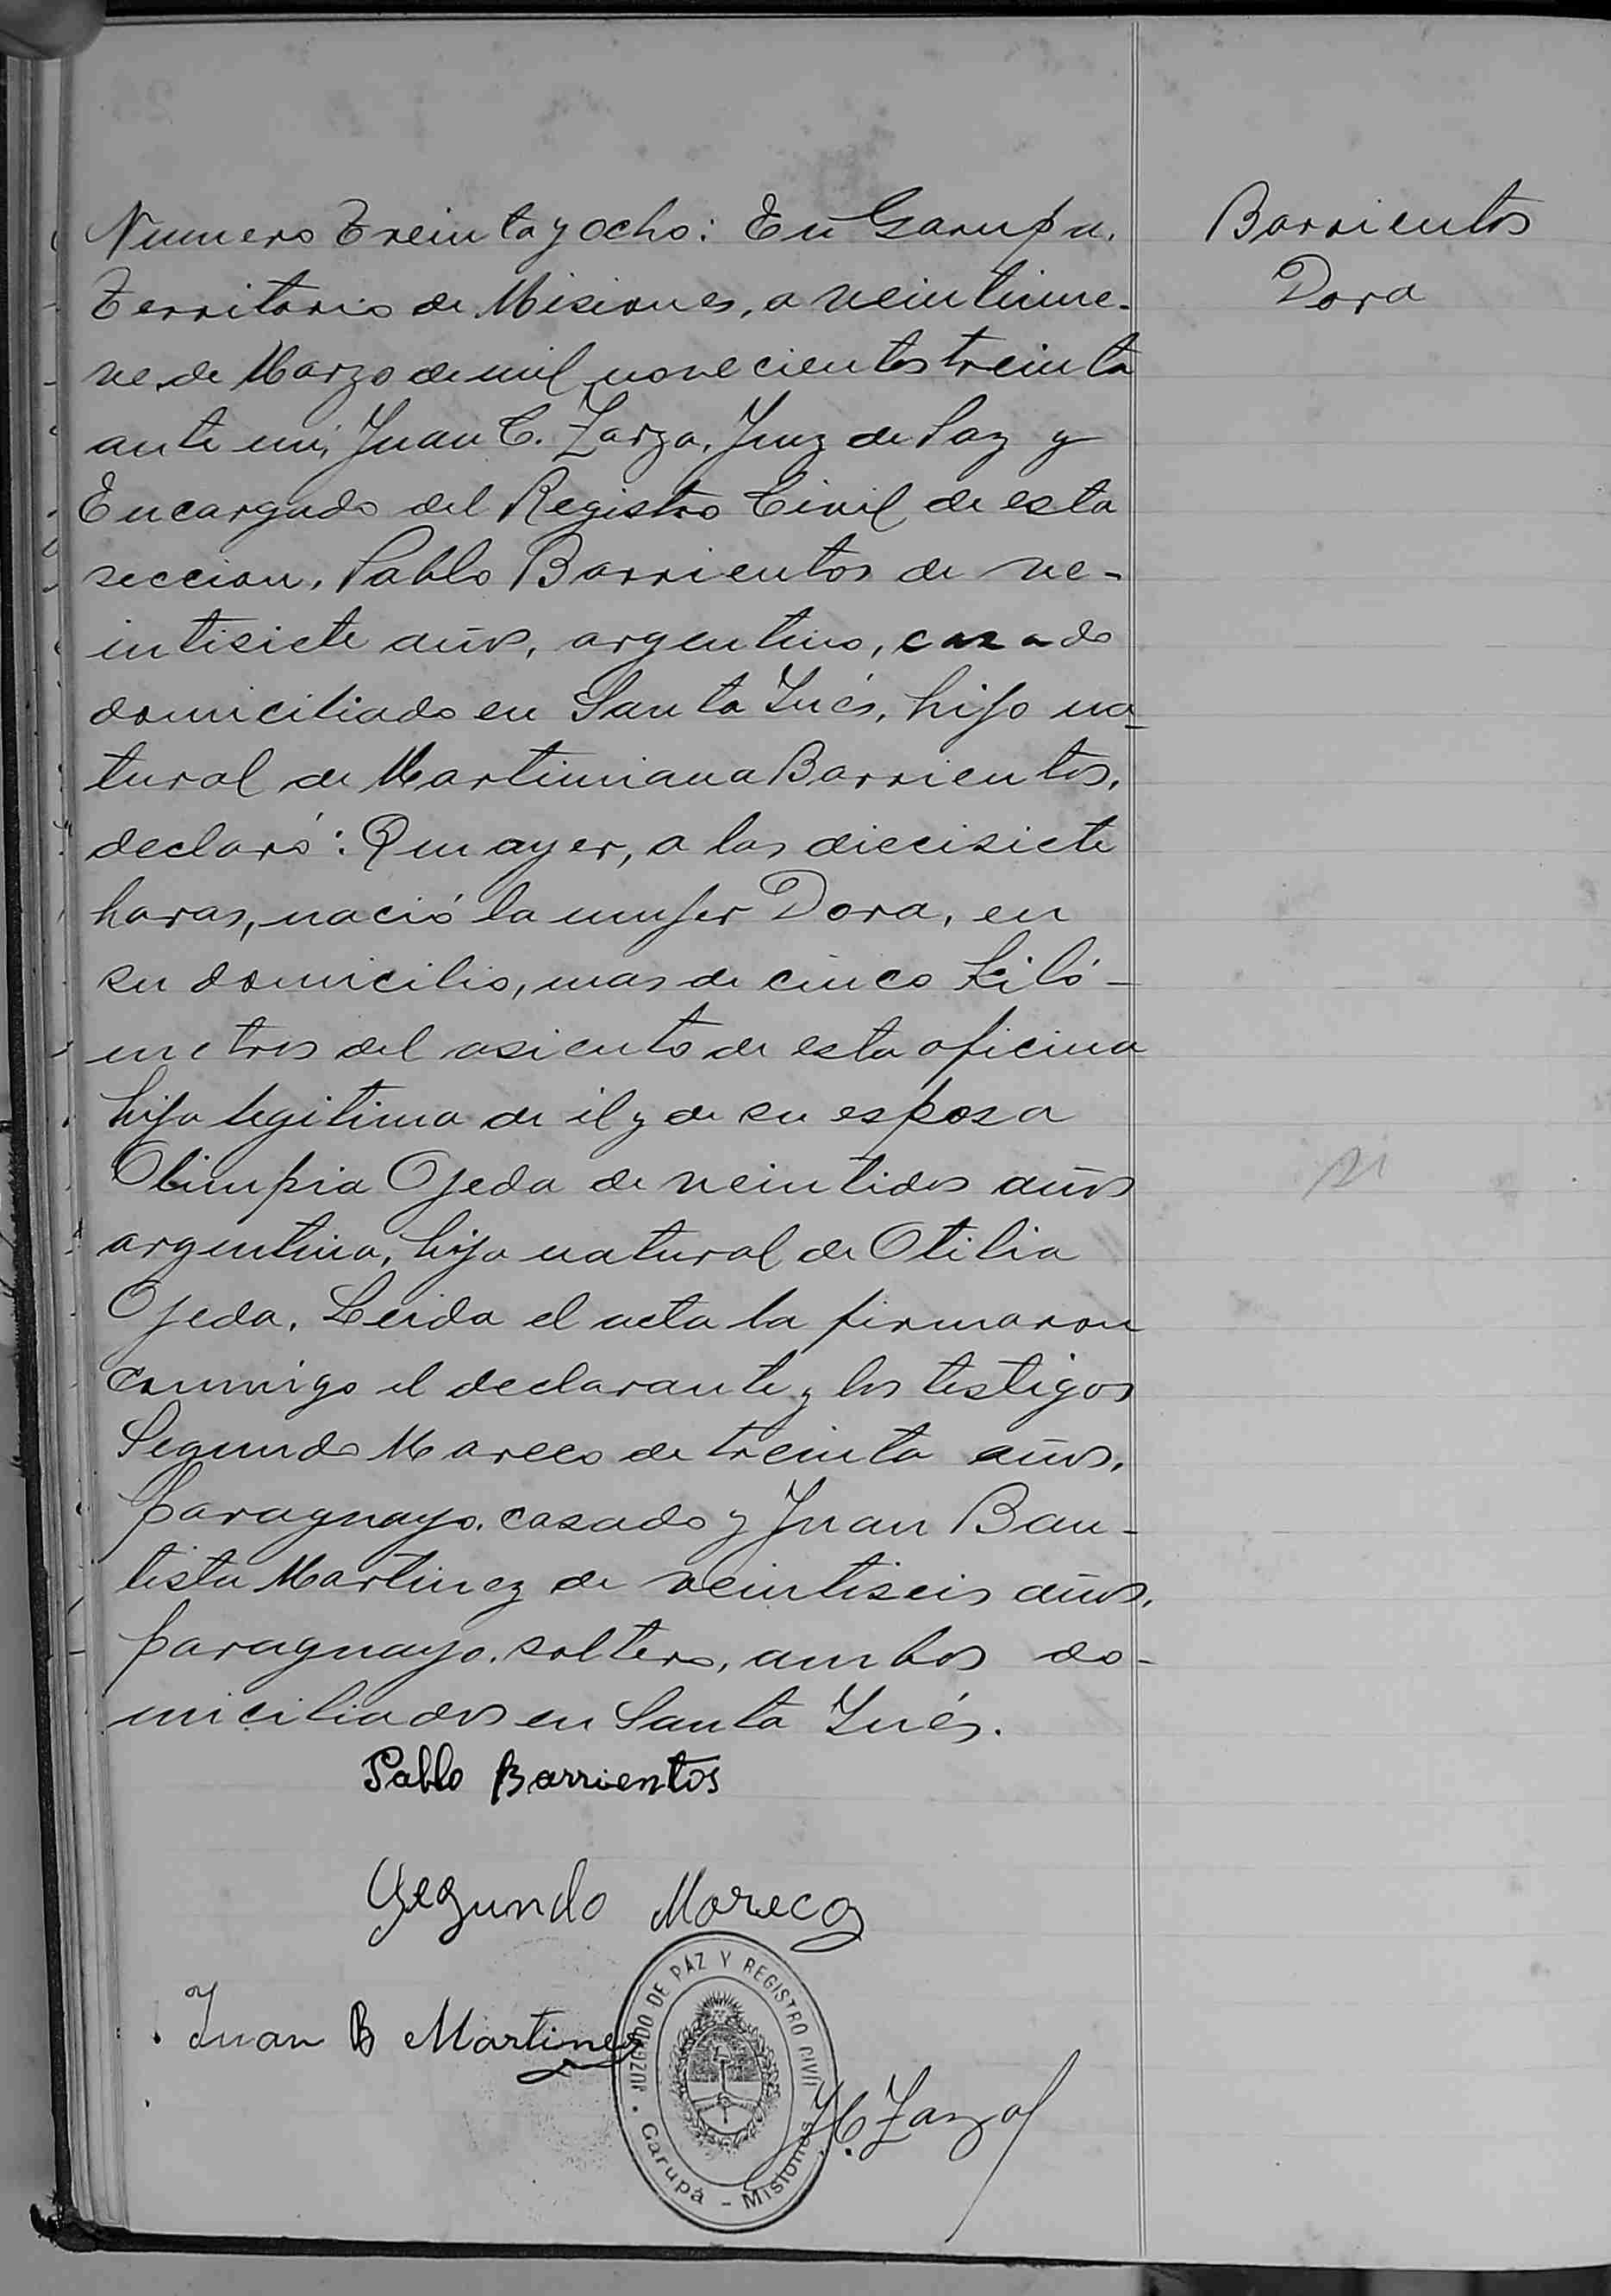 Numero Treinta y ocho: En Garupa,
Barrientos
Dora
Territorio de Misiones, a veintinue-
ve de Marzo de mil novecientos treinta
ante mi, Juan C. Zarza, Juez de Paz y
Encargado del Registro Civil de esta
seccion, Pablo Barrientos de ve-
intisiete años, argentino, casado
domiciliado en Santa Inés, hijo na-
tural de Martimiana Barrientos,
declaró: Que ayer, a las diecisiete
horas, nació la mujer Dora, en
su domicilio, mas de cinco Kiló-
metros del asiento de esta oficina
hija legitima de él y de su esposa
Olimpia Ojeda de veintidos años
argentina, hija natural de Otilia
Ojeda. Leida el acta la firmaron
conmigo el declarante y los testigos
Segundo Mareco de treinta años,
paraguayo, casado y Juan Bau-
tista Martinez de veintiseis años,
paraguayo, soltero, ambos do-
miciliados en Santa Inés.
Pablo Barrientos
Segundo Moreco
Juan B Martinez
JUZGADO DE PAZ Y REGISTRO CIVIL
Garupá - Misiones
J C. Zarza